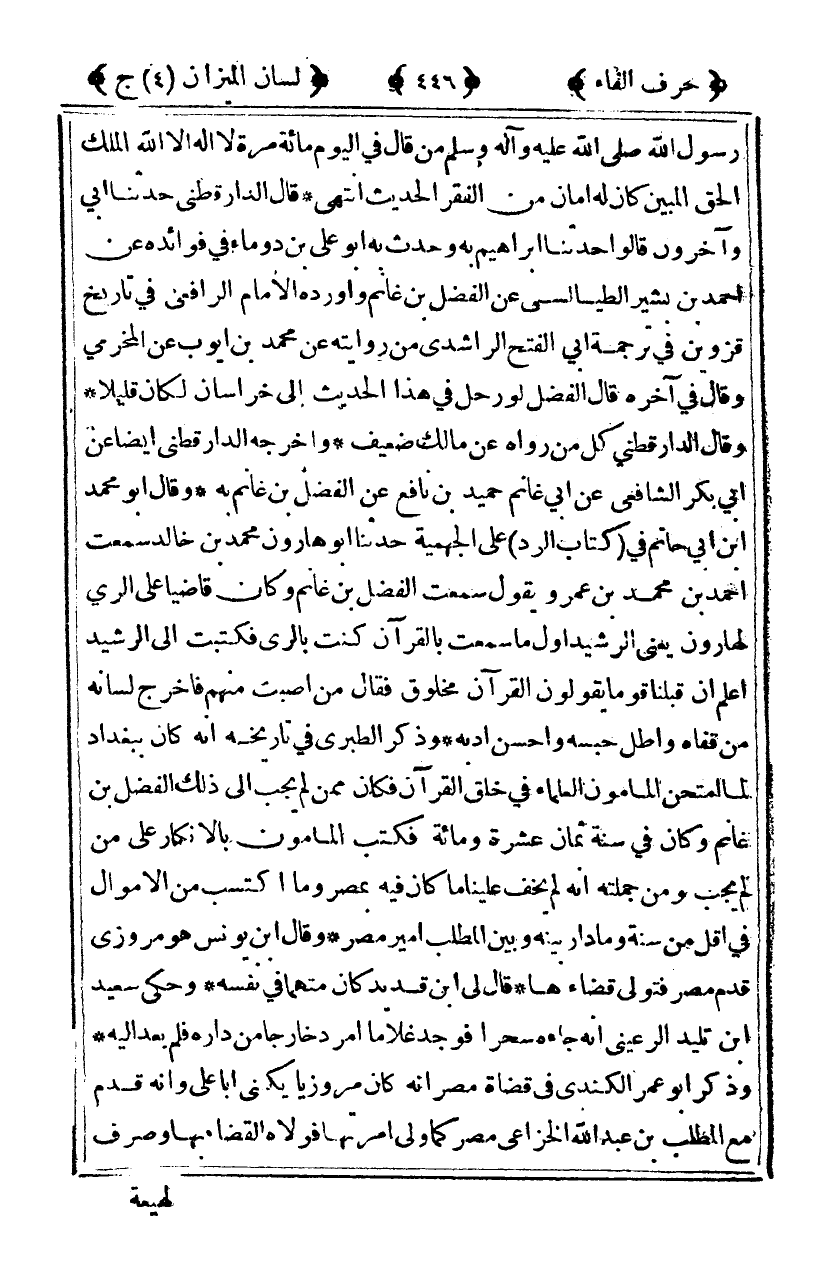 ﴿ حرف الفاء ﴾ ﴿ ٤٤٦ ﴾ ﴿ لسان الميزان (٤) ج ﴾
رسول الله صلى الله عليه وآله وسلم من قال في اليوم مائة مرة لا اله الا الله الملك
الحق المبين كان له امان من الفقر الحديث انتهى * قال الدارقطنى حدثنا ابي
وآخرون قالوا حدثنا ابراهيم به وحدث به ابو على بن دوماء في فوائده عن
احمد بن بشير الطيالسى عن الفضل بن غانم واورده الأمام الرافعى في تاريخ
قزوين في ترجمة ابي الفتح الراشدى من روايته عن محمد بن ايوب عن المخرمي
وقال في آخره قال الفضل لو رحل في هذا الحديث إلى خراسان لكان قليلا *
وقال الدارقطني كل من رواه عن مالك ضعيف * واخرجه الدارقطنى ايضا عن
ابي بكر الشافعى عن ابي غانم حميد بن نافع عن الفضل بن غانم به * وقال ابو محمد
ابن ابي حاتم في (كتاب الرد) على الجهمية حدثنا ابو هارون محمد بن خالد سمعت
احمد بن محمد بن عمرو يقول سمعت الفضل بن غانم وكان قاضيا على الري
لهارون يعنى الرشيد اول ما سمعت بالقرآن كنت بالرى فكتبت الى الرشيد
اعلم ان قبلنا قوما يقولون القرآن مخلوق فقال من اصبت منهم فاخرج لسانه
من قفاه واطل حبسه واحسن ادبه * وذكر الطبرى في تاريخه انه كان ببغداد
لما امتحن المامون العلماء في خلق القرآن فكان ممن لم يجب الى ذلك الفضل بن
غانم وكان في سنة ثمان عشرة ومائة فكتب المامون بالانكار على من
لم يجب ومن جملته انه لم يخف علينا ما كان فيه بمصر وما اكتسب من الاموال
في اقل من سنة وما دار بينه وبين المطلب امير مصر * وقال ابن يونس هو مروزى
قدم مصر فتولى قضاء ها * قال لى ابن قديد كان متهما في نفسه * وحكى سعيد
ابن تليد الرعينى انه جاءه سحرا فوجد غلاما امرد خارجا من داره فلم يعد اليه *
وذكر ابو عمر الكندى فى قضاة مصر انه كان مروزيا يكنى ابا على وانه قدم
مع المطلب بن عبد الله الخزاعى مصر كما ولى امرتها فولاه القضاء بها وصرف
لهيعة